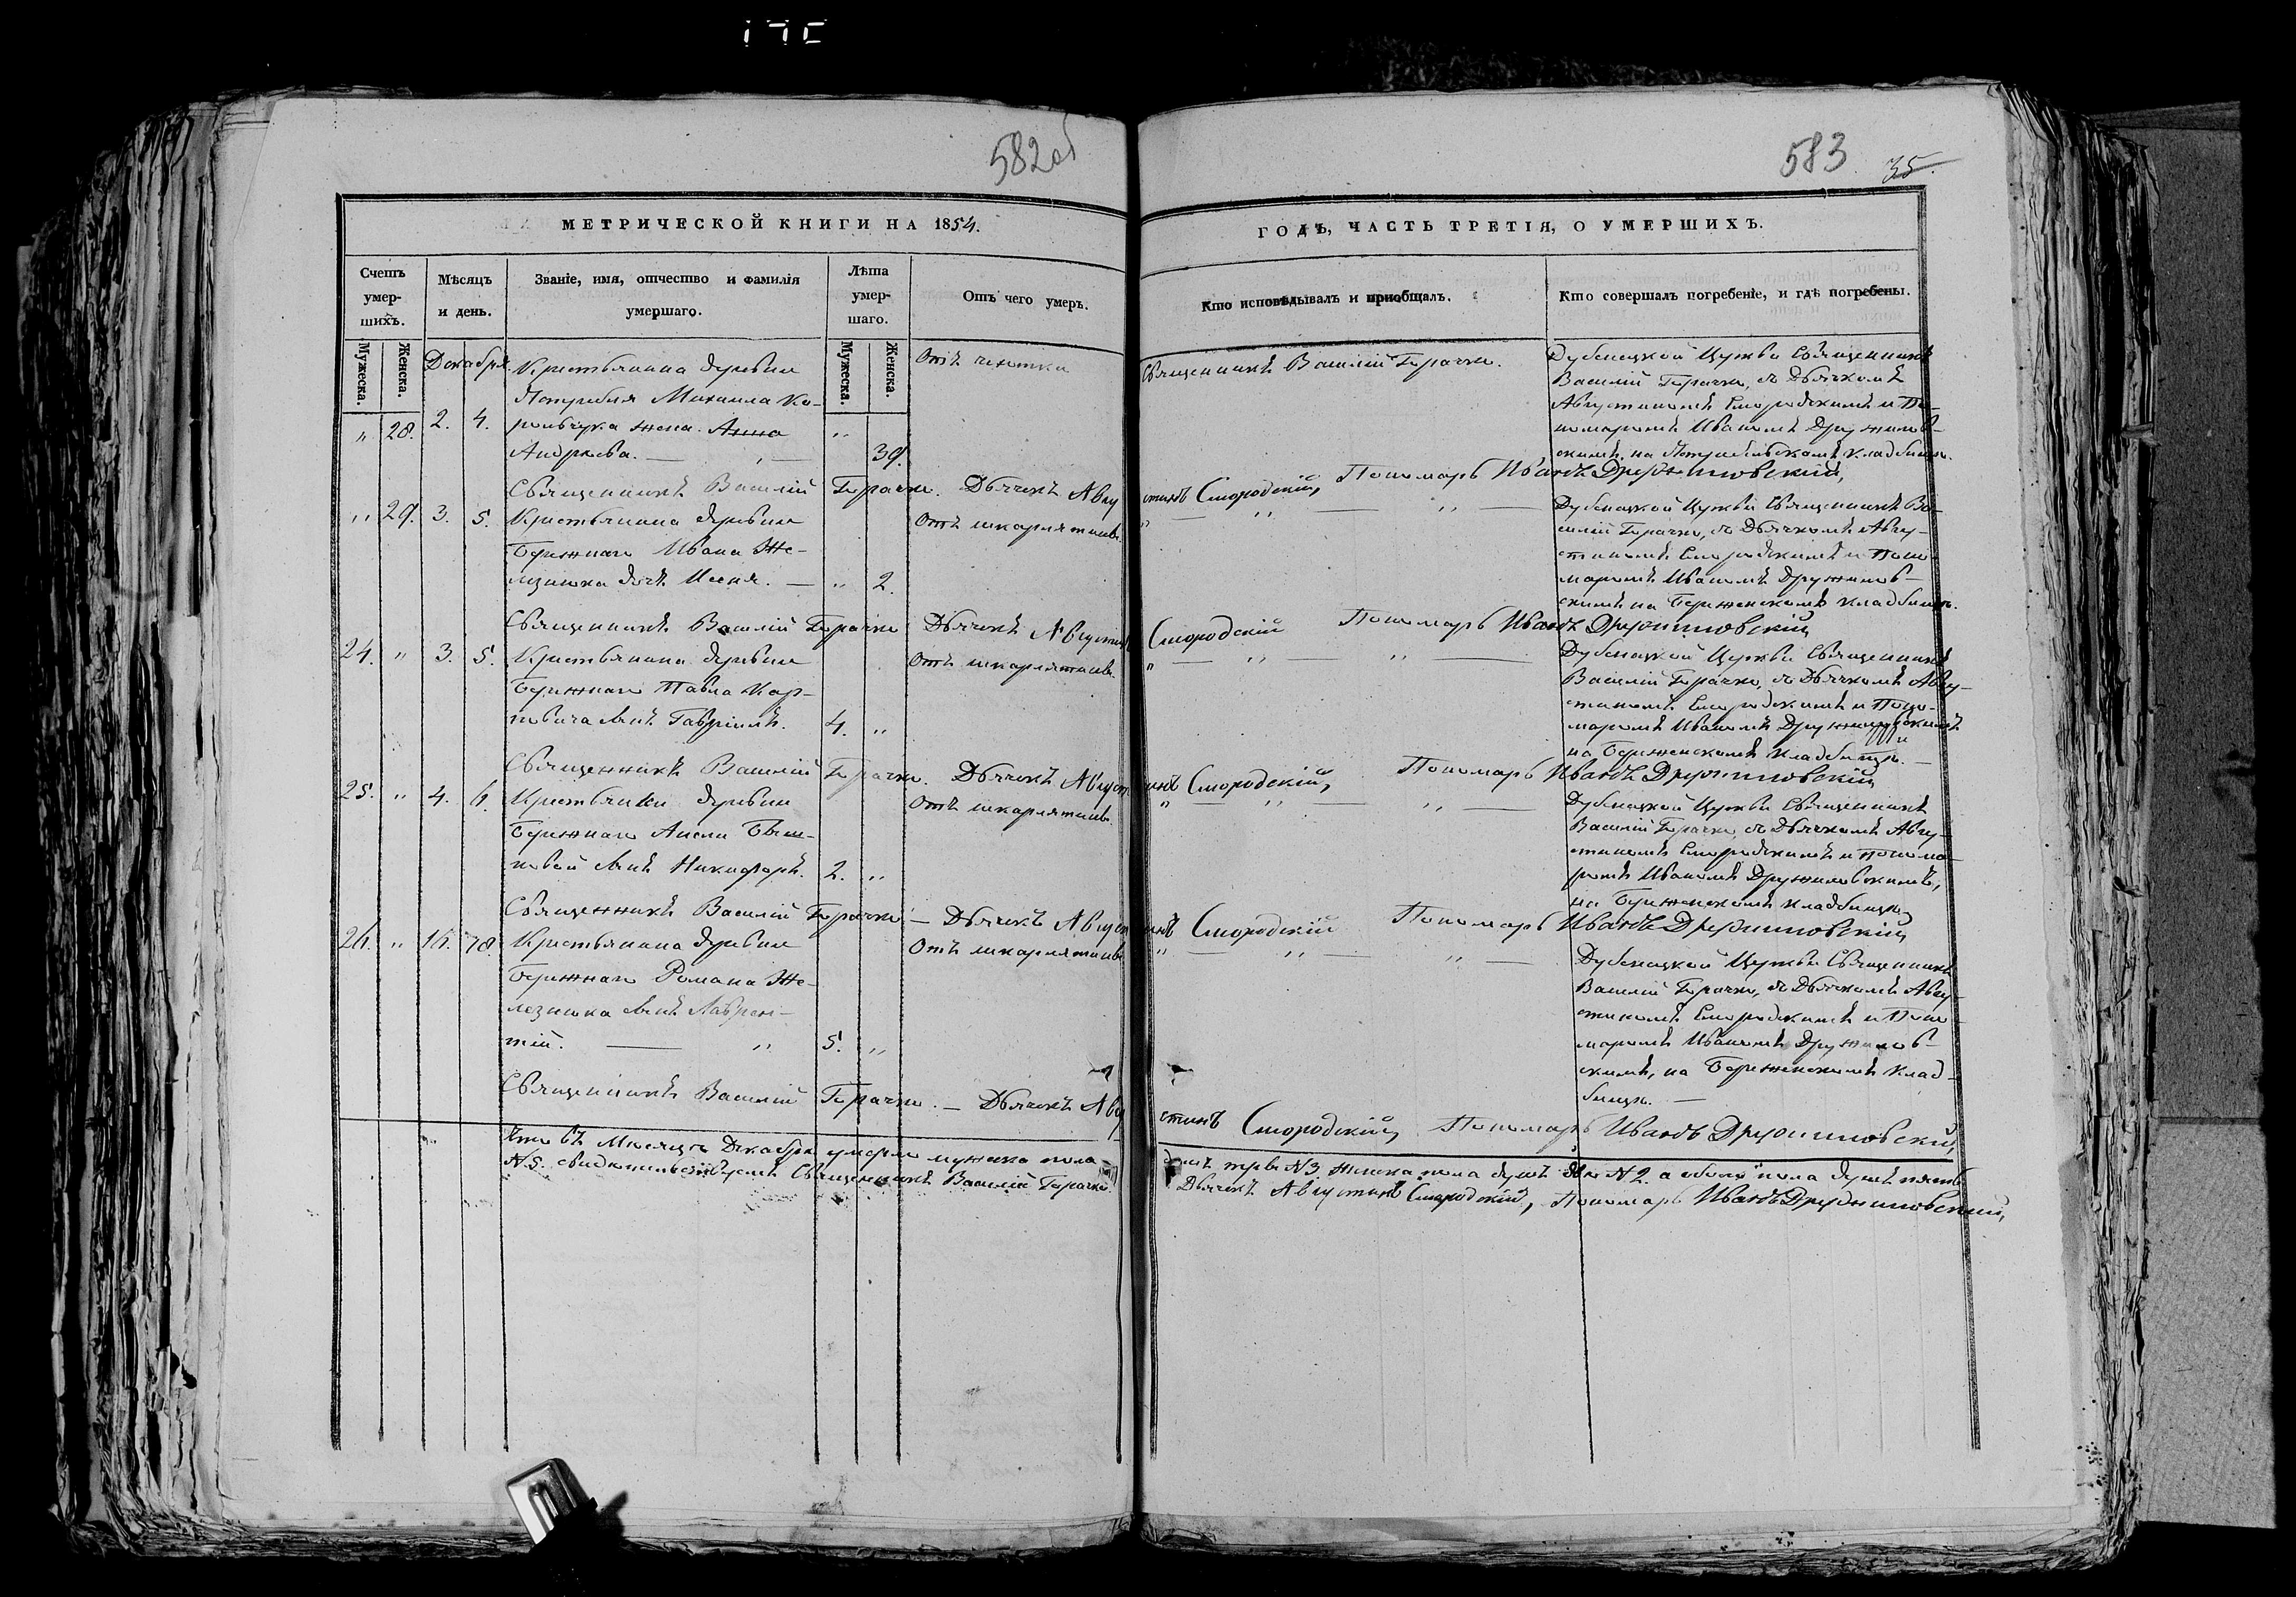 582 об
583
35
МЕТРИЧЕСКОЙ КНИГИ НА 1854.
ГОДЪ, ЧАСТЬ ТРЕТІЯ, О УМЕРШИХЪ.
Счетъ умер-шихъ.
Мѣсяцъ и день.
Званіе, имя, отчество и фамилія умершаго.
Лѣта умер-шаго.
Отъ чего умеръ.
Кто исповѣдывалъ и приобщалъ.
Кто совершалъ погребеніе, и гдѣ погребены.
Мужеска.
Женска.
Мужеска.
Женска.
Декабря.
Крестьянина деревни
Михаила Ко-
рольчука жена Анна
Андреева.
„ 28. 2. 4. „ 39.
Отъ чехотки
Священникъ Василій Герачко.
Дубенецкой Церкви Священникъ
Василій Герачко, съ Дьячкомъ
Августиномъ Смородскимъ и По-
номаремъ Иваномъ Дружилов-
скимъ, на кладбищѣ.
Священникъ Василій Герачко. Дьячекъ Августинъ Смородскій, Пономарь Иванъ Дружиловскій,
„ 29. 3. 5.
Крестьянина деревни
Бережнаго Ивана Же-
лезнюка дочь „ 2.
Отъ шкарлятины.
Дубенецкой Церкви Священникъ Ва-
силій Герачко, съ Дьячкомъ Авгу-
стиномъ Смородскимъ и Поно-
маремъ Иваномъ Дружилов-
скимъ на Береженскомъ кладбищѣ.
Священникъ Василій Герачко Дьячекъ Августинъ Смородскій Пономарь Иванъ Дружиловскій
24. „ 3. 5.
Крестьянина деревни
Бережнаго Павла Кар-
повича сынъ Гавріилъ. 4. „
Отъ шкарлятины.
Дубенецкой Церкви Священникъ
Василій Герачко, съ Дьячкомъ Авгу-
стиномъ Смородскимъ и Поно-
маремъ Иваномъ Дружиловскимъ
на Береженскомъ кладбищѣ.
Священникъ Василій Герачко. Дьячекъ Августинъ Смородскій, Пономарь Иванъ Дружиловскій
25. „ 4. 6.
Крестьянки деревни
Бережнаго
новой сынъ Никифоръ. 2. „
Отъ шкарлятины.
Дубенецкой Церкви Священникъ
Василій Герачко, съ Дьячкомъ Авгу-
стиномъ Смородскимъ и Понома-
ремъ Иваномъ Дружиловскимъ,
на Береженскомъ кладбищѣ
Священникъ Василій Герачко – Дьячекъ Августинъ Смородскій Пономарь Иванъ Дружиловскій
26. „ 16. 18.
Крестьянина деревни
Бережнаго Романа Же-
лезнюка сынъ Лаврен-
тій. „ 5. „
Отъ шкарлятины
Дубенецкой Церкви Священникъ
Василій Герачко, съ Дьячкомъ Авгу-
стиномъ Смородскимъ и Поно-
маремъ Иваномъ Дружилов-
скимъ, на Береженскомъ клад-
бищѣ. –
Священникъ Василій Герачко. – Дьячекъ Августинъ Смородскій, Пономарь Иванъ Дружиловскій,
Что въ Месяцѣ Декабрѣ умерло мужеска пола душъ три N 3 женска пола душъ две N 2. а обоего пола душъ пять
N 5. свидетельствуемъ Священникъ Василій Герачко Дьячекъ Августинъ Смородскій, Пономарь Иванъ Дружиловскій,